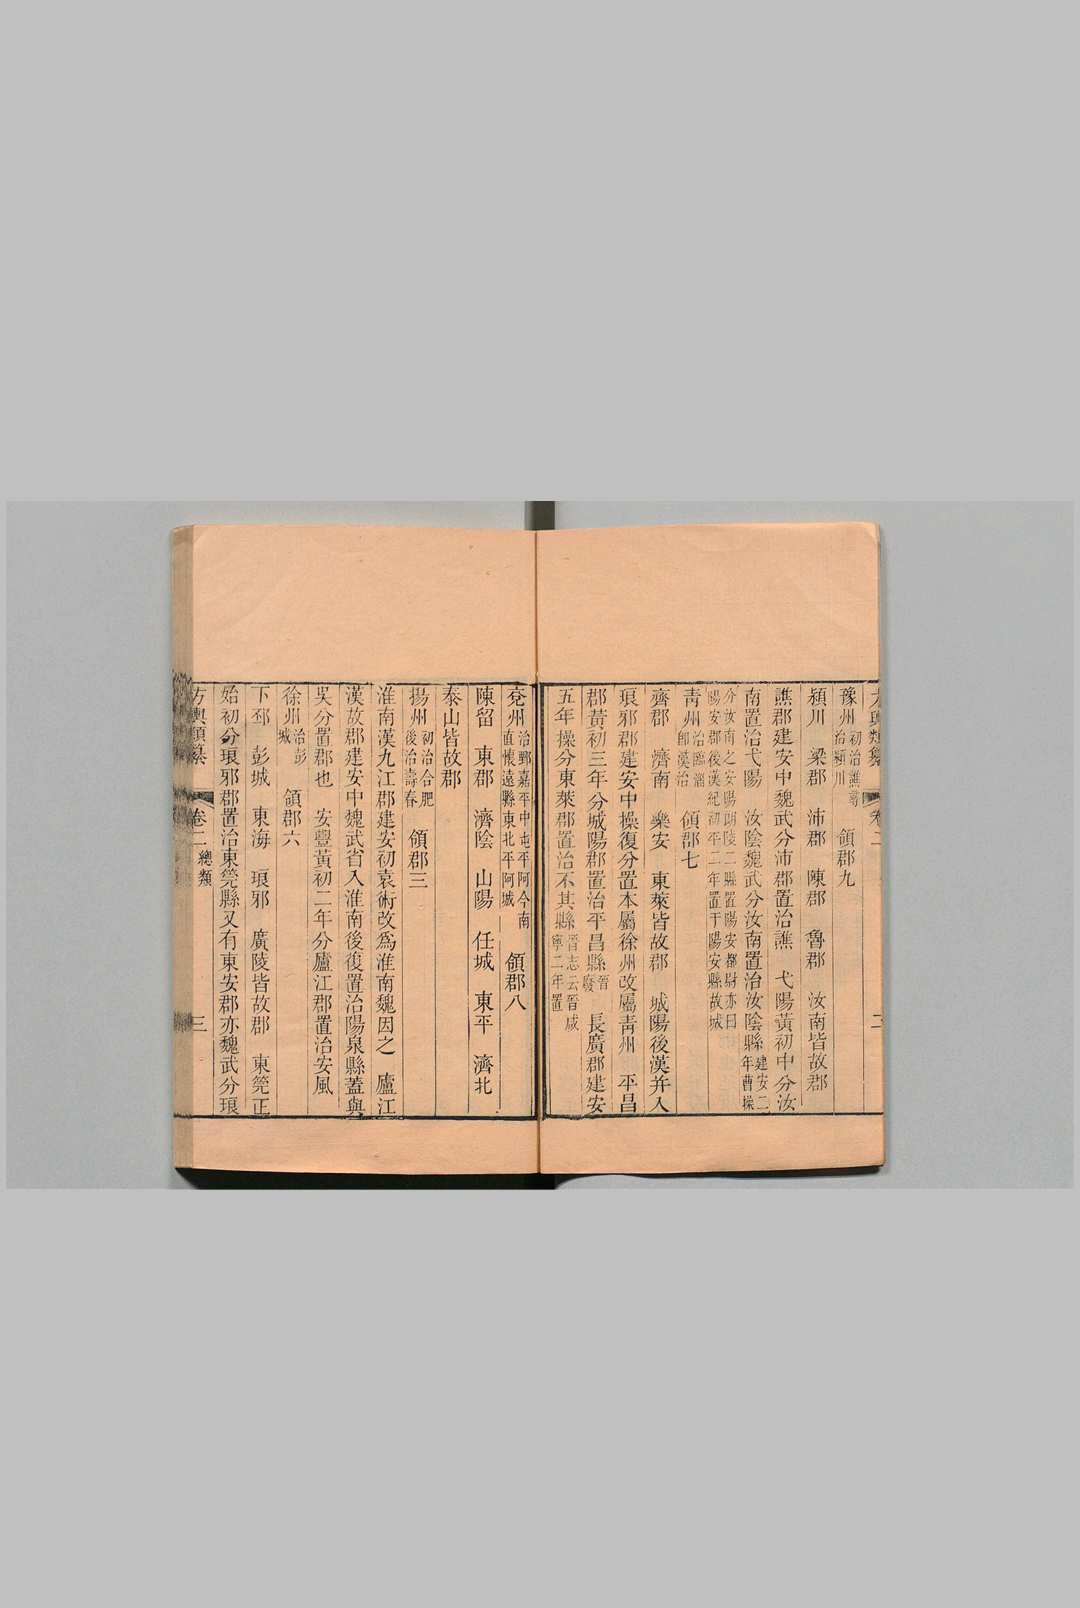 豫州初治譙尋治潁川 領郡九
潁川 梁郡 沛郡 陳郡 魯郡 汝南皆故郡
譙郡建安中魏武分沛郡置治譙 弋陽黃初中分汝
南置治弋陽 汝陰魏武分汝南置治汝陰縣建安二年曹操
分汝南之安陽朗陵二縣置陽安都尉亦曰陽安郡後漢紀初平二年置于陽安縣故城
靑州治臨淄卽漢治 領郡七
齊郡 濟南 樂安 東萊皆故郡 城陽後漢幷入
琅邪郡建安中操復分置本屬徐州改屬靑州 平昌
郡黃初三年分城陽郡置治平昌縣晉廢 長廣郡建安
五年操分東萊郡置治不其縣晉志云晉咸寧二年置
兗州治鄄嘉平中屯平阿今南直懷遠縣東北平阿城 領郡八
陳留 東郡 濟陰 山陽 任城 東平 濟北
泰山皆故郡
揚州初治合肥後治壽春 領郡三
淮南漢九江郡建安初袁術改爲淮南魏因之 廬江
漢故郡建安中魏武省入淮南後復置治陽泉縣蓋與
吳分置郡也 安豐黃初二年分廬江郡置治安風
徐州治彭城 領郡六
下邳 彭城 東海 琅邪 廣陵皆故郡 東筦正
始初分琅邪郡置治東筦縣又有東安郡亦魏武分琅
方輿類纂 卷二 總類 三